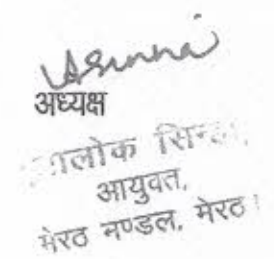 अध्यक्ष
आलोक सिन्हा,
आयुक्त,
मेरठ मण्डल, मेरठ।